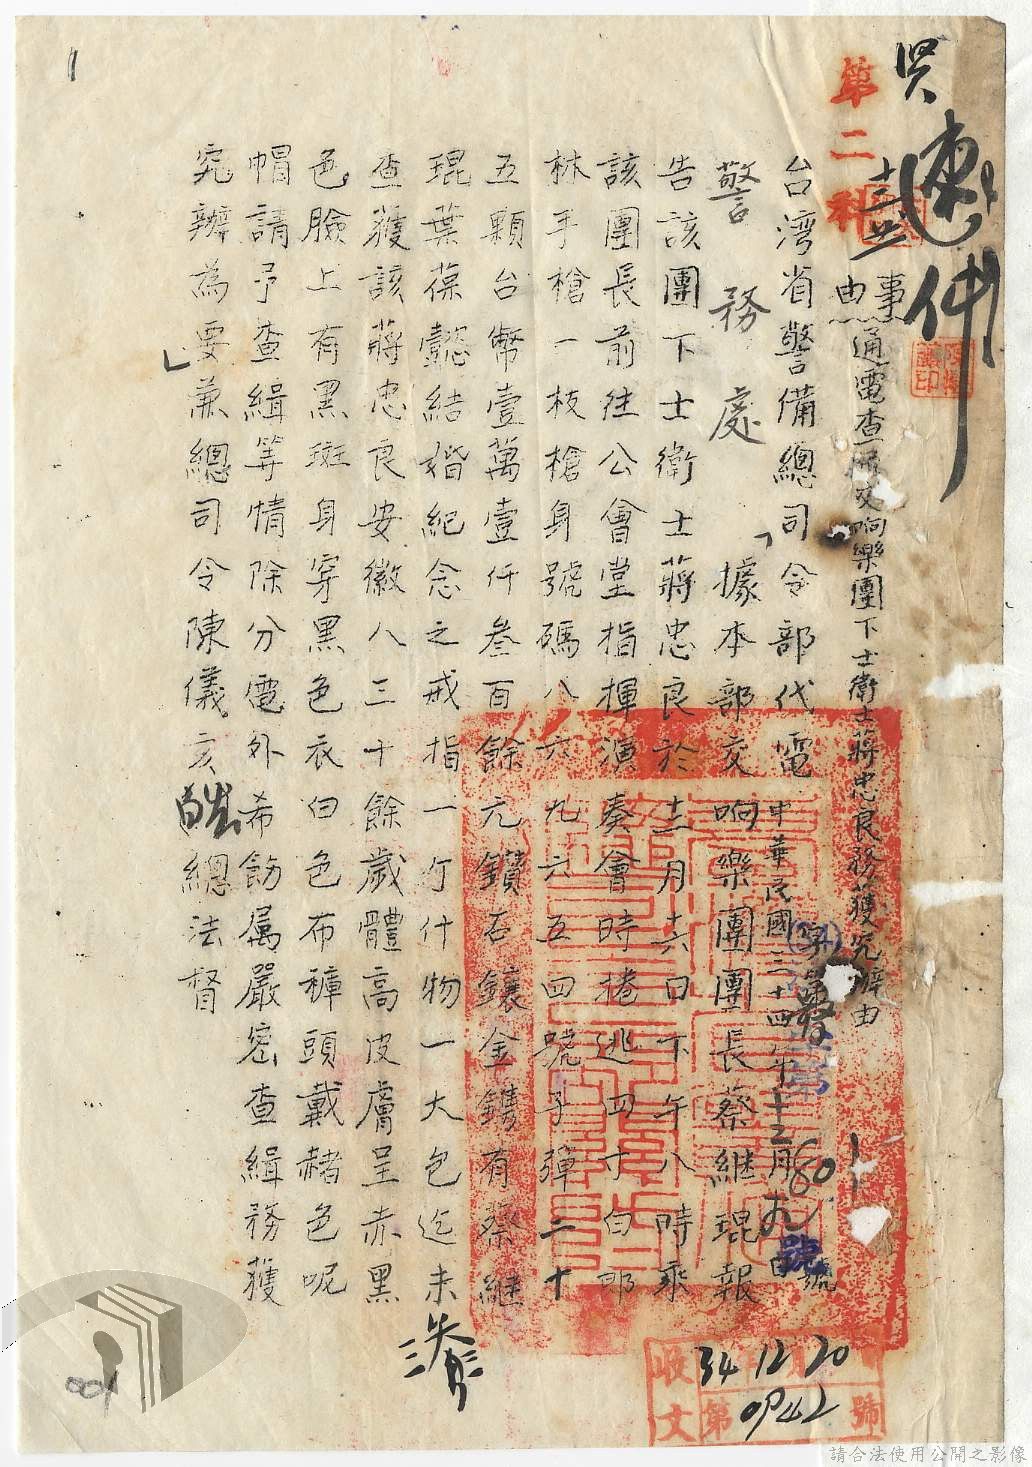 速件
第二科
事由
通電查緝交响樂團下士衛士蔣忠良務獲究辦由
台湾省警備總司令部代電
中華民國三十四年十二月十九日
號
警務處
「據本部交响樂團團長蔡继琨報
告該團下士衛士蔣忠良於十二月六日下午八時乘
該團長前往公會堂指揮演奏會時捲逃四寸白郎
林手槍一枝槍身號碼八六九六五四號子彈二十
五顆台幣壹萬壹仟叁百餘元鑽石鑲金鐫有蔡継
琨葉葆懿結婚紀念之戒指一仃什物一大包迄未
查獲該蔣忠良安徽人三十餘歲體高皮膚呈赤黑
色臉上有黑斑身穿黑色衣白色布褲頭戴赭色呢
帽請予查緝等情除分電外希飭属嚴密查緝務獲
究辦為要兼總司令陳儀亥
總法督
」
收文
34 12 20
第 0942 號
001
請合法使用公開之影像